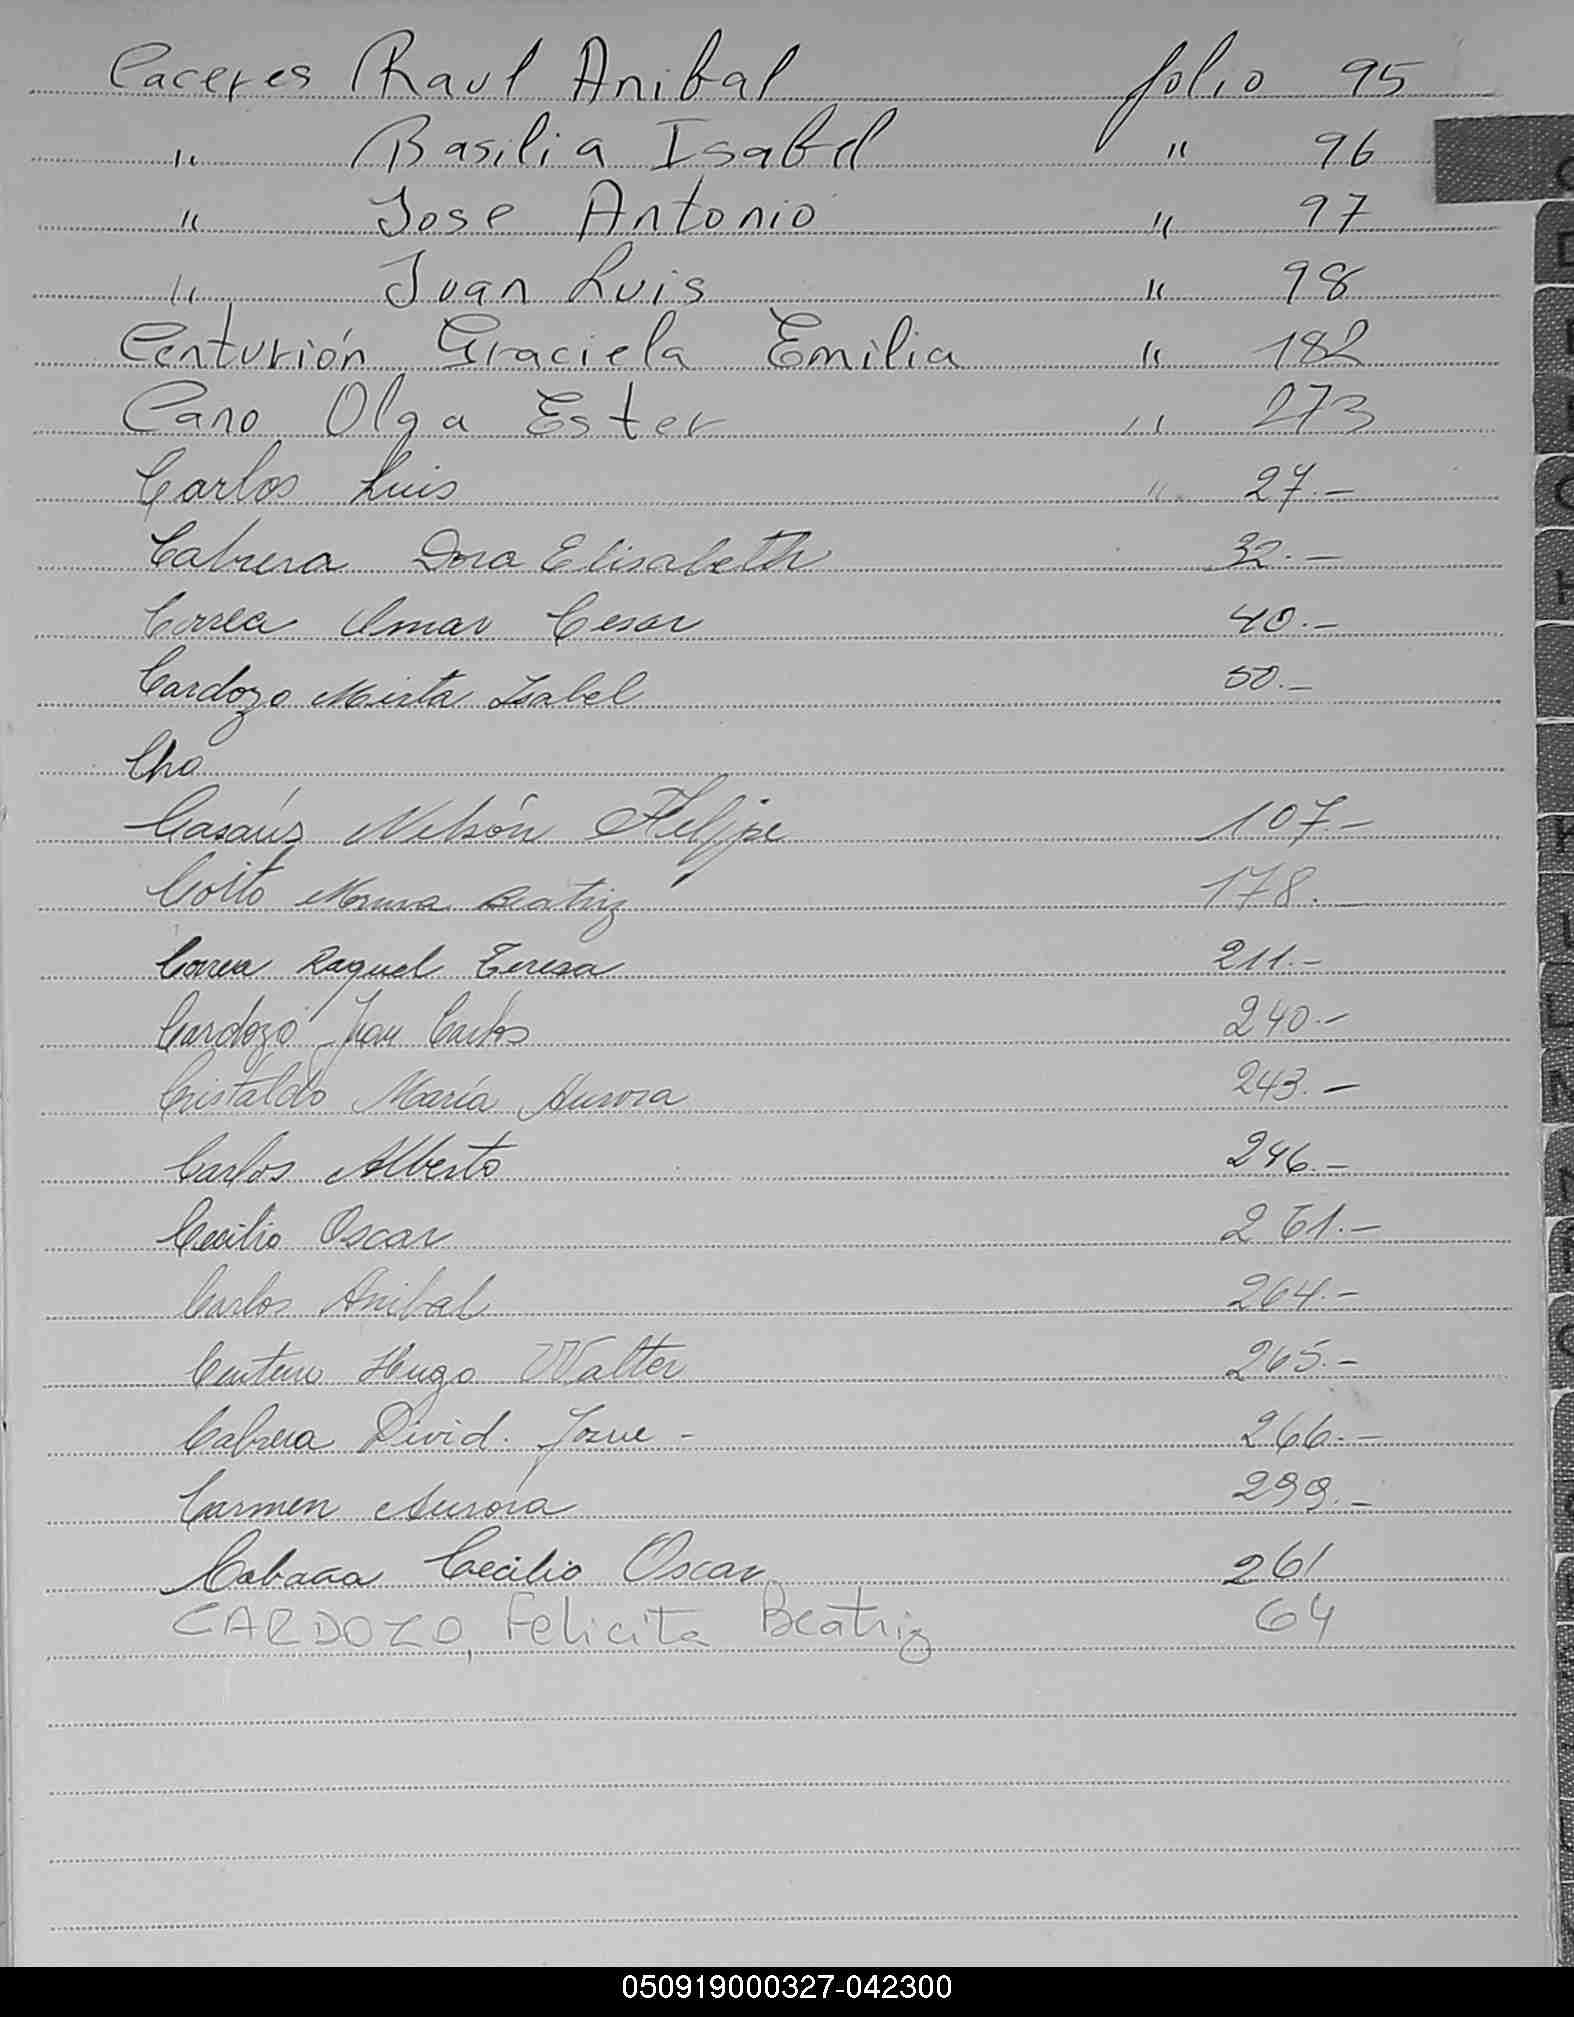 Caceres Raul Anibal folio 95
" Basilia Isabel " 96
" Jose Antonio " 97
" Juan Luis " 98
Centurión Graciela Emilia " 182
Cano Olga Ester " 273
Carlos Luis " 27.-
Cabrera Dora Elisabeth 32.-
Correa Omar Cesar 40.-
Cardozo Mirta Isabel 50.-
Cha
Casaús Nelsón Felipe 107.-
Coito Norma Beatriz 178.-
Correa Raquel Teresa 211.-
Cardozo Juan Carlos 240.-
Cristaldo María Aurora 243.-
Carlos Alberto 246.-
Cecilio Oscar 261.-
Carlos Anibal 264.-
Centeno Hugo Walter 265.-
Cabrera Divid. Josue - 266.-
Carmen Aurora 299.-
Cecilio Oscar 261
CARDOZO, Felicita Beatriz 64
050919000327-042300